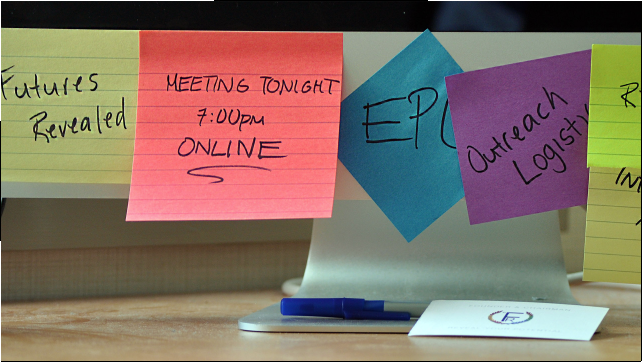 Futures
Revealed
MEETING TONIGHT
7:00pm
ONLINE
EPC
Outreach
F